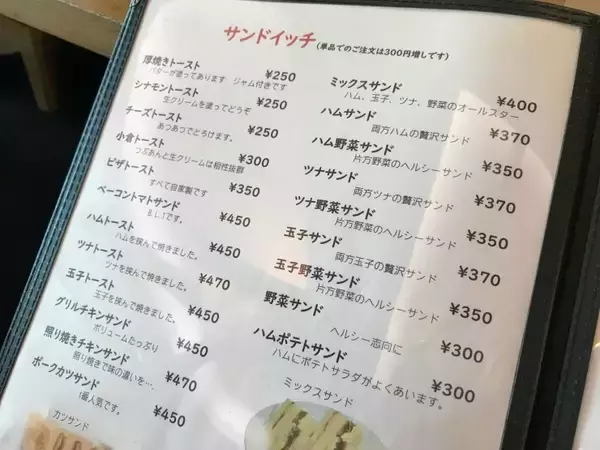 サンドイッチ (単品でのご注文は300円増しです)
厚焼きトースト ¥250
バターが塗ってあります ジャム付きです
シナモントースト ¥250
生クリームを塗ってどうぞ
チーズトースト ¥250
あつあつでとろけます。
小倉トースト ¥300
つぶあんと生クリームは相性抜群
ピザトースト ¥350
すべて自家製です
ベーコントマトサンド ¥450
B.L.Tです。
ハムトースト ¥450
ハムを挟んで焼きました。
ツナトースト ¥470
ツナを挟んで焼きました。
玉子トースト ¥450
玉子を挟んで焼きました。
グリルチキンサンド ¥450
ボリュームたっぷり
照り焼きチキンサンド ¥470
照り焼きで味の違いを…
ポークカツサンド ¥450
1番人気です。
カツサンド
ミックスサンド ¥400
ハム、玉子、ツナ、野菜のオールスター
ハムサンド ¥370
両方ハムの贅沢サンド
ハム野菜サンド ¥350
片方野菜のヘルシーサンド
ツナサンド ¥370
両方ツナの贅沢サンド
ツナ野菜サンド ¥350
片方野菜のヘルシーサンド
玉子サンド ¥370
両方玉子の贅沢サンド
玉子野菜サンド ¥350
片方野菜のヘルシーサンド
野菜サンド ¥300
ヘルシー志向に
ハムポテトサンド ¥300
ハムにポテトサラダがよくあいます。
ミックスサンド